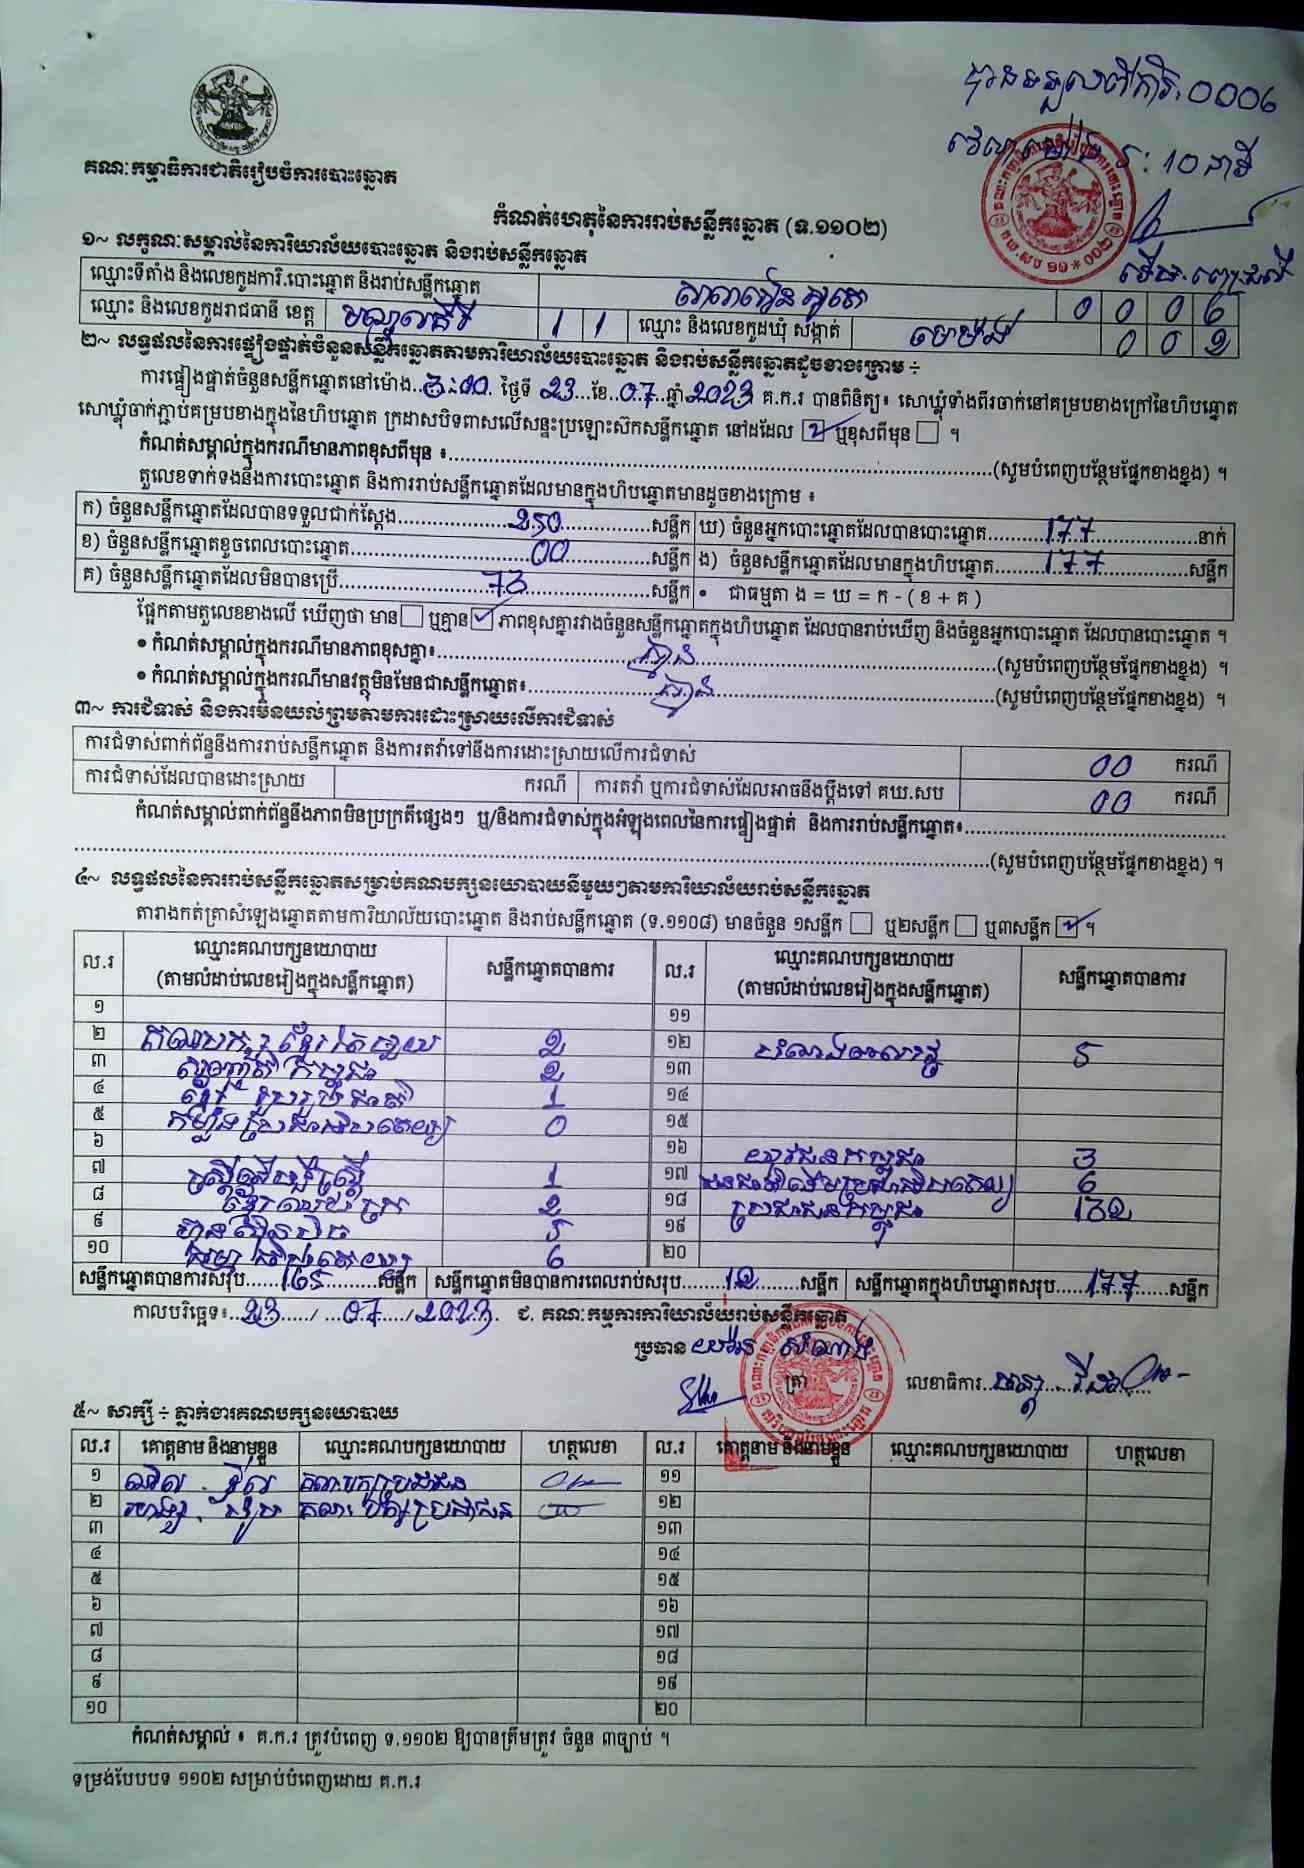 0006
10 នាទី
គណៈកម្មាធិការជាតិរៀបចំការបោះឆ្នោត
កំណត់ហេតុនៃការរាប់សន្លឹកឆ្នោត (ទ.១១០២)
១~ លក្ខណៈសម្គាល់នៃការិយាល័យបោះឆ្នោត និងរាប់សន្លឹកឆ្នោត
ឈ្មោះទីតាំង និងលេខកូដការិ.បោះឆ្នោត និងរាប់សន្លឹកឆ្នោត សាលារៀន 0 0 0 6
ឈ្មោះ និងលេខកូដរាជធានី ខេត្ត មណ្ឌលគិរី 1 1 ឈ្មោះ និងលេខកូដឃុំ សង្កាត់ មេម៉ង់ 0 0 2
២~ លទ្ធផលនៃការផ្ទៀងផ្ទាត់ចំនួនសន្លឹកឆ្នោតតាមការិយាល័យបោះឆ្នោត និងរាប់សន្លឹកឆ្នោតដូចខាងក្រោម ÷
ការផ្ទៀងផ្ទាត់ចំនួនសន្លឹកឆ្នោតនៅម៉ោង ថ្ងៃទី 23 ខែ 07 ឆ្នាំ 2023 គ.ក.រ បានពិនិត្យ៖ សោឃ្លុំទាំងពីរចាក់នៅគម្របខាងក្រៅនៃហិបឆ្នោត
សោឃ្លុំចាក់ភ្ជាប់គម្របខាងក្នុងនៃហិបឆ្នោត ក្រដាសបិទពាសលើសន្ទះប្រឡោះស៊កសន្លឹកឆ្នោត នៅដដែល ☑ ឬខុសពីមុន ☐ ។
កំណត់សម្គាល់ក្នុងករណីមានភាពខុសពីមុន ៖ (សូមបំពេញបន្ថែមផ្នែកខាងខ្នង) ។
តួលេខទាក់ទងនឹងការបោះឆ្នោត និងការរាប់សន្លឹកឆ្នោតដែលមានក្នុងហិបឆ្នោតមានដូចខាងក្រោម ៖
ក) ចំនួនសន្លឹកឆ្នោតដែលបានទទួលជាក់ស្តែង 250 សន្លឹក ឃ) ចំនួនអ្នកបោះឆ្នោតដែលបានបោះឆ្នោត 177 នាក់
ខ) ចំនួនសន្លឹកឆ្នោតខូចពេលបោះឆ្នោត 00 សន្លឹក ង) ចំនួនសន្លឹកឆ្នោតដែលមានក្នុងហិបឆ្នោត 177 សន្លឹក
គ) ចំនួនសន្លឹកឆ្នោតដែលមិនបានប្រើ 73 សន្លឹក • ជាធម្មតា ង = ឃ = ក - ( ខ + គ )
ផ្អែកតាមតួលេខខាងលើ ឃើញថា មាន ☐ ឬគ្មាន ☑ ភាពខុសគ្នារវាងចំនួនសន្លឹកឆ្នោតក្នុងហិបឆ្នោត ដែលបានរាប់ឃើញ និងចំនួនអ្នកបោះឆ្នោត ដែលបានបោះឆ្នោត ។
• កំណត់សម្គាល់ក្នុងករណីមានភាពខុសគ្នា៖ គ្មាន (សូមបំពេញបន្ថែមផ្នែកខាងខ្នង) ។
• កំណត់សម្គាល់ក្នុងករណីមានវត្ថុមិនមែនជាសន្លឹកឆ្នោត៖ គ្មាន (សូមបំពេញបន្ថែមផ្នែកខាងខ្នង) ។
៣~ ការជំទាស់ និងការមិនយល់ព្រមតាមការដោះស្រាយលើការជំទាស់
ការជំទាស់ពាក់ព័ន្ធនឹងការរាប់សន្លឹកឆ្នោត និងការតវ៉ាទៅនឹងការដោះស្រាយលើការជំទាស់ 00 ករណី
ការជំទាស់ដែលបានដោះស្រាយ ករណី ការតវ៉ា ឬការជំទាស់ដែលអាចនឹងប្តឹងទៅ គឃ.សប 00 ករណី
កំណត់សម្គាល់ពាក់ព័ន្ធនឹងភាពមិនប្រក្រតីផ្សេងៗ ឬ/និងការជំទាស់ក្នុងអំឡុងពេលនៃការផ្ទៀងផ្ទាត់ និងការរាប់សន្លឹកឆ្នោត៖
(សូមបំពេញបន្ថែមផ្នែកខាងខ្នង) ។
៤~ លទ្ធផលនៃការរាប់សន្លឹកឆ្នោតសម្រាប់គណបក្សនយោបាយនីមួយៗតាមការិយាល័យរាប់សន្លឹកឆ្នោត
តារាងកត់ត្រាសំឡេងឆ្នោតតាមការិយាល័យបោះឆ្នោត និងរាប់សន្លឹកឆ្នោត (ទ.១១០៨) មានចំនួន ១សន្លឹក ☐ ឬ២សន្លឹក ☐ ឬ៣សន្លឹក ☑ ។
ល.រ ឈ្មោះគណបក្សនយោបាយ សន្លឹកឆ្នោតបានការ ល.រ ឈ្មោះគណបក្សនយោបាយ សន្លឹកឆ្នោតបានការ
(តាមលំដាប់លេខរៀងក្នុងសន្លឹកឆ្នោត) (តាមលំដាប់លេខរៀងក្នុងសន្លឹកឆ្នោត)
១ ១១
២ 2 ១២ 5
៣ 2 ១៣
៤ ខ្មែររួបរួមជាតិ 1 ១៤
៥ កម្លាំងប្រជាធិបតេយ្យ 0 ១៥
៦ ១៦ យុវជនកម្ពុជា 3
៧ ស្ត្រីដើម្បីស្ត្រី 1 ១៧ 6
៨ 2 ១៨ ប្រជាជនកម្ពុជា 132
៩ ហ៊្វុនស៊ិនប៉ិច 5 ១៩
១០ 6 ២០
សន្លឹកឆ្នោតបានការសរុប 165 សន្លឹក សន្លឹកឆ្នោតមិនបានការពេលរាប់សរុប 12 សន្លឹក សន្លឹកឆ្នោតក្នុងហិបឆ្នោតសរុប 177 សន្លឹក
កាលបរិច្ឆេទ៖ 23 / 07 / 2023. ជ. គណៈកម្មការការិយាល័យរាប់សន្លឹកឆ្នោត
ប្រធាន សំណាង
ត្រា លេខាធិការ
៥~ សាក្សី ÷ ភ្នាក់ងារគណបក្សនយោបាយ
ល.រ គោត្តនាម និងនាមខ្លួន ឈ្មោះគណបក្សនយោបាយ ហត្ថលេខា ល.រ គោត្តនាម និងនាមខ្លួន ឈ្មោះគណបក្សនយោបាយ ហត្ថលេខា
១ គណបក្សប្រជាជន ១១
២ គណៈបក្សប្រជាជន ១២
៣ ១៣
៤ ១៤
៥ ១៥
៦ ១៦
៧ ១៧
៨ ១៨
៩ ១៩
១០ ២០
កំណត់សម្គាល់ ៖ គ.ក.រ ត្រូវបំពេញ ទ.១១០២ ឱ្យបានត្រឹមត្រូវ ចំនួន ៣ច្បាប់ ។
ទម្រង់បែបបទ ១១០២ សម្រាប់បំពេញដោយ គ.ក.រ